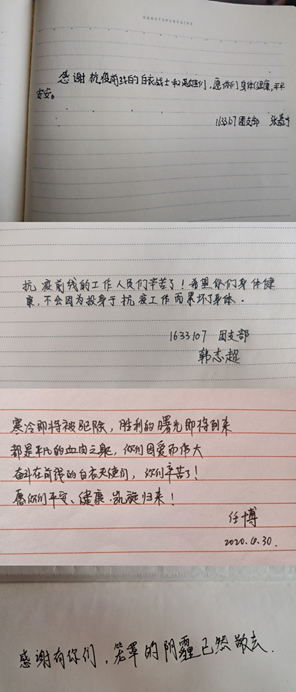 感谢抗疫前线的白衣战士和英雄们,愿你们身体健康,平平
安安。
163307团支部
抗疫前线的工作人员们辛苦了!希望你们身体健
康,不会因为投身于抗疫工作而累坏了身体。
1633107 团支部
韩志超
寒冷即将被驱除,胜利的曙光即将到来
都是平凡的血肉之躯,你们因爱而伟大
奋斗在前线的白衣天使们,你们辛苦了!
愿你们平安、健康、凯旋归来!
任博
2020.4.30.
感谢有你们,笼罩的阴霾已然散去